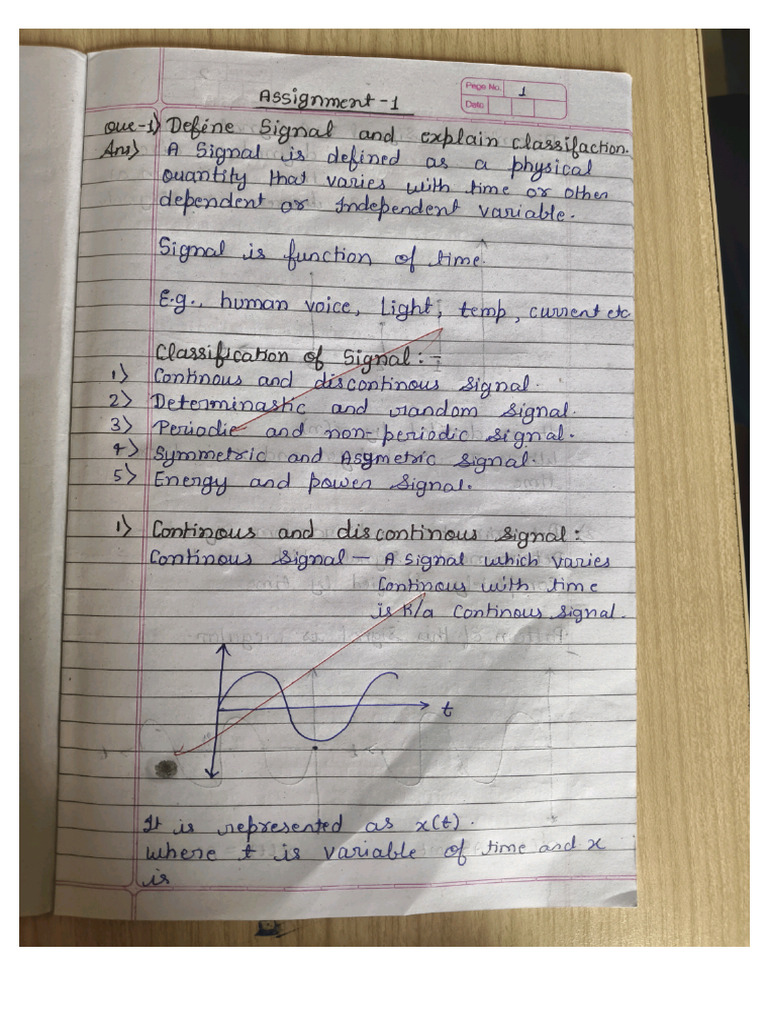 Assignment-1
Page No. 1
Date
Que-1) Define Signal and explain classifaction.
Ans) A Signal is defined as a physical
quantity that varies with time or other
dependent or Independent variable.
Signal is function of time.
E.g., human voice, Light, temp, current etc
Classification of Signal:-
1) Continous and discontinous Signal.
2) Determinastic and random Signal.
3) Periodic and non-periodic Signal.
4) Symmetric and Asymetric Signal.
5) Energy and power Signal.
1) Continous and discontinous Signal:
Continous Signal - A Signal which varies
Continous with time
is K/a Continous Signal.
t
It is represented as x(t).
where t is variable of time and x
is